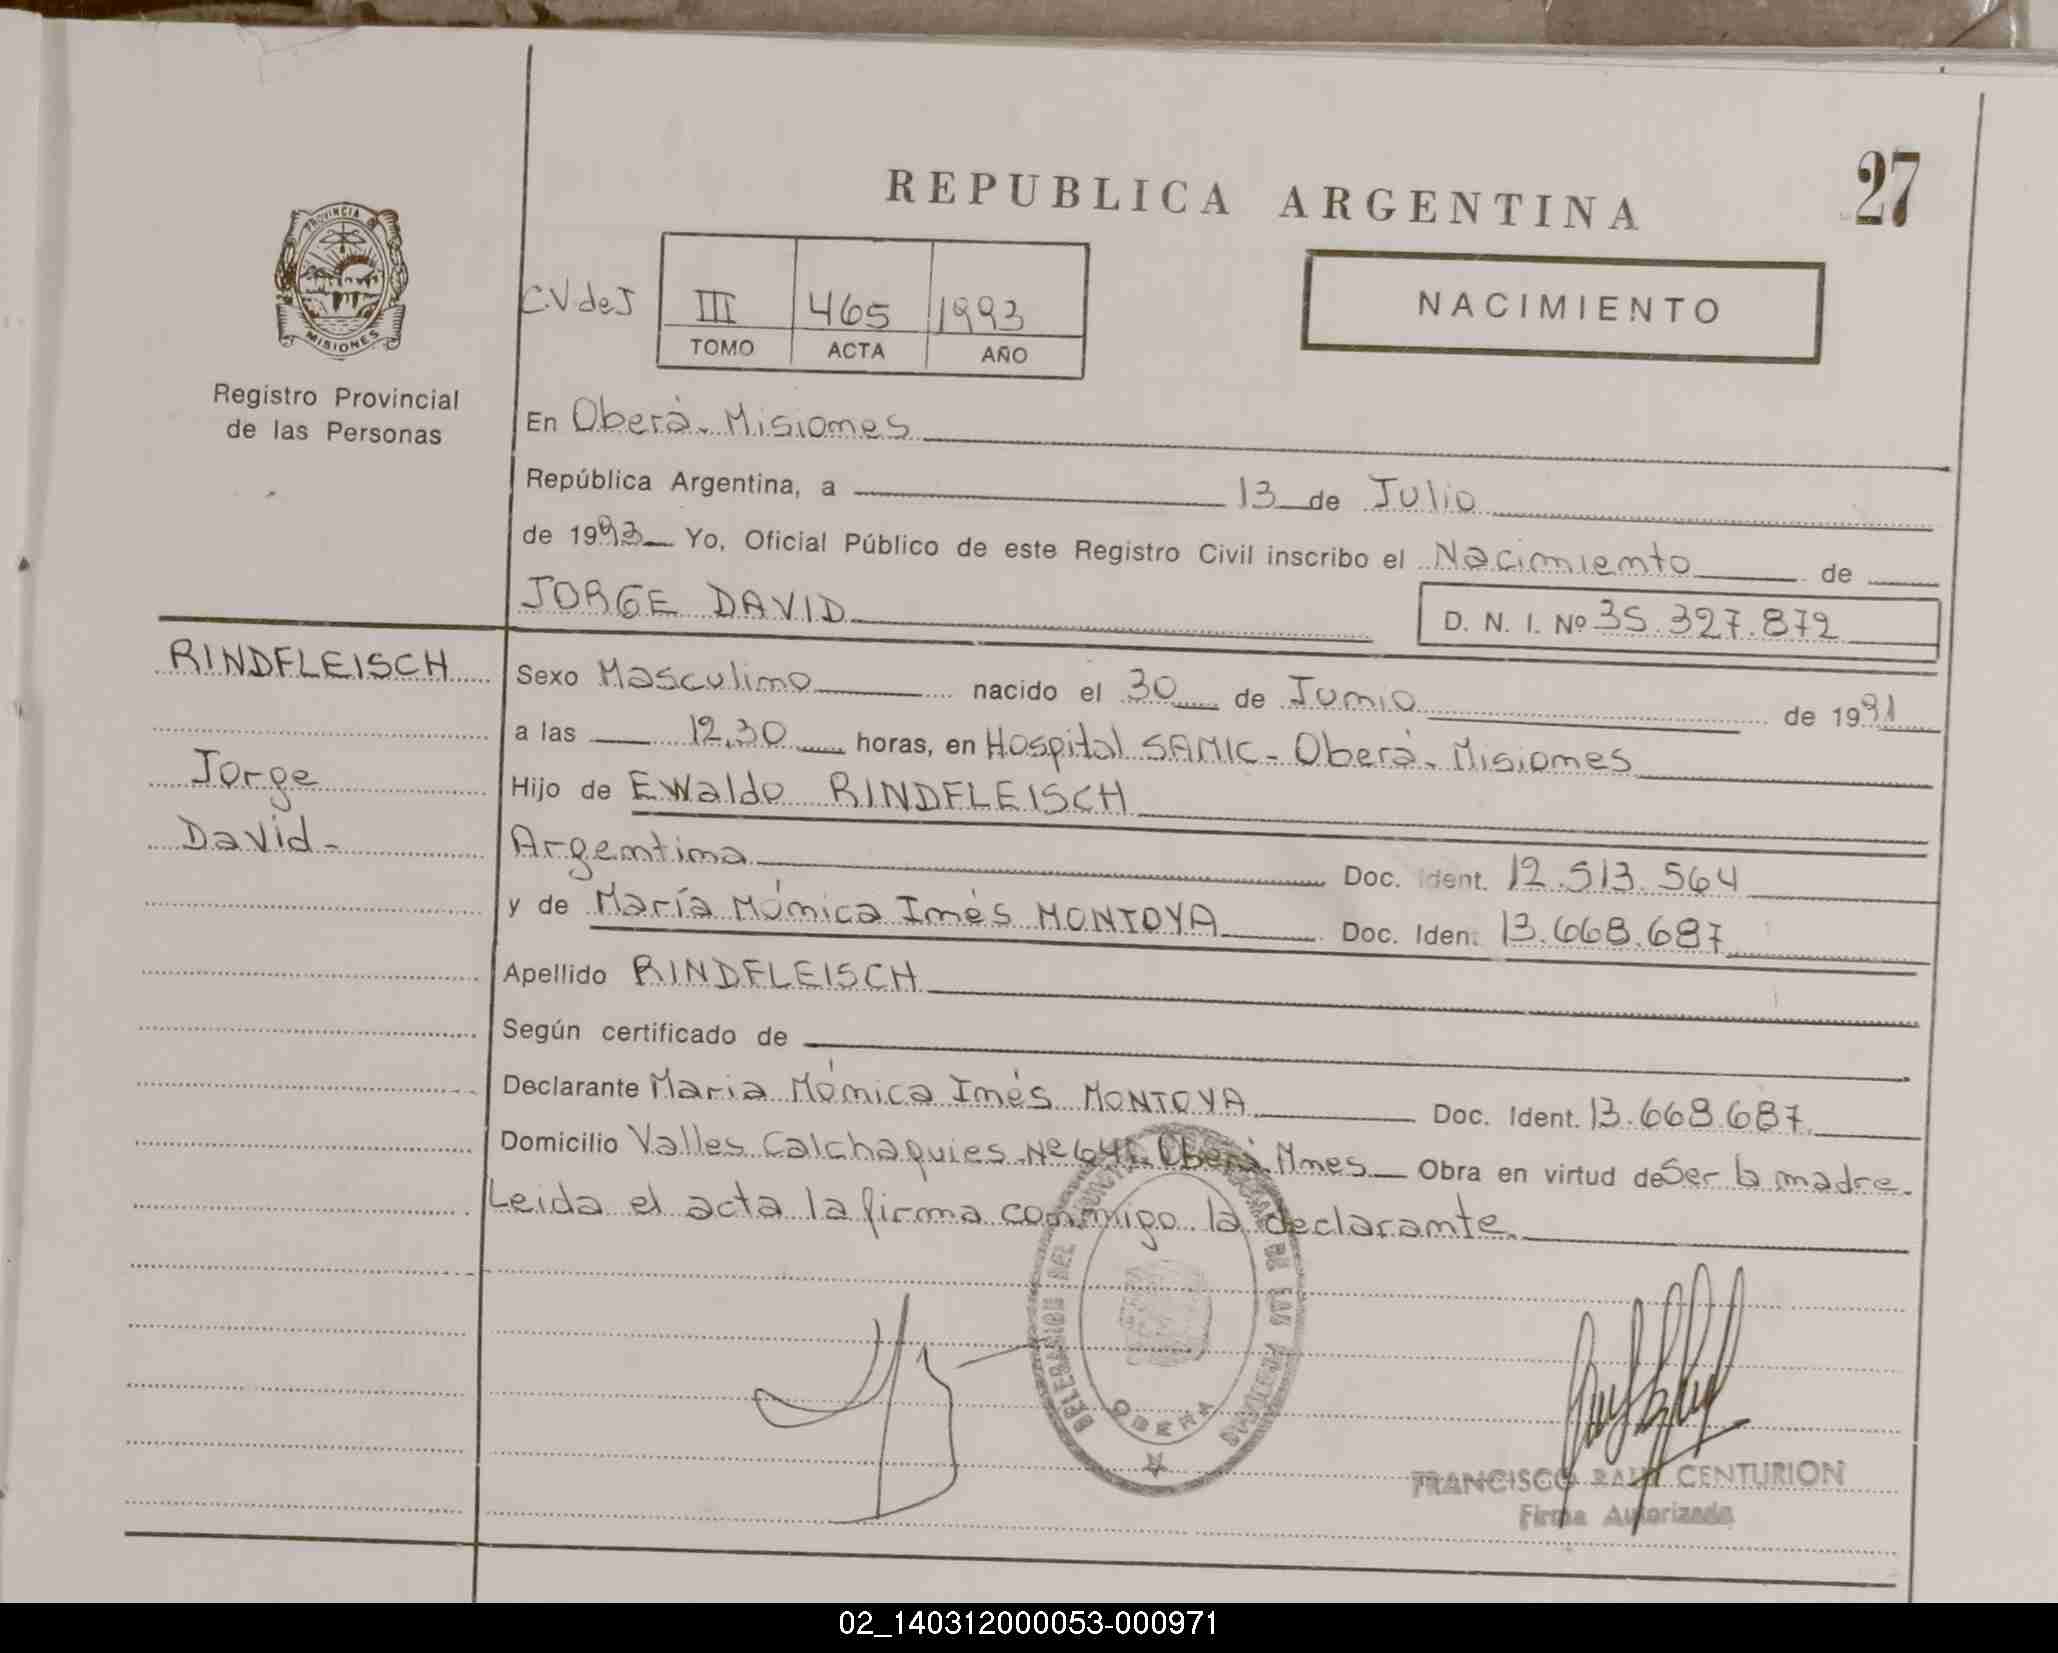 27
REPUBLICA ARGENTINA
PROVINCIA DE
MISIONES
Registro Provincial
de las Personas
NACIMIENTO
C.V de J
III 465 1993
TOMO ACTA AÑO
En Oberá. Misiones
República Argentina, a 13 de Julio
de 1993 Yo, Oficial Público de este Registro Civil inscribo el Nacimiento de
JORGE DAVID D. N. I. Nº 35.327.872
RINDFLEISCH
Jorge
David-
Sexo Masculino nacido el 30 de Junio de 1991
a las 12,30 horas, en Hospital SAMIC - Oberá. Misiones
Hijo de Ewaldo RINDFLEISCH
Argentina Doc. Ident. 12.513.564
y de María Mónica Inés MONTOYA Doc. Iden. 13.668.687
Apellido RINDFLEISCH
Según certificado de
Declarante Maria Mónica Inés MONTOYA Doc. Ident. 13.668.687
Domicilio Valles Calchaquies Nº Oberá Mnes Obra en virtud de Ser la madre.
Leida el acta la firma conmigo la declarante.
DELEGACION DEL DE LAS PERSONAS
OBERA
FRANCISCO RAUL CENTURION
Firma Autorizada
02_140312000053-000971